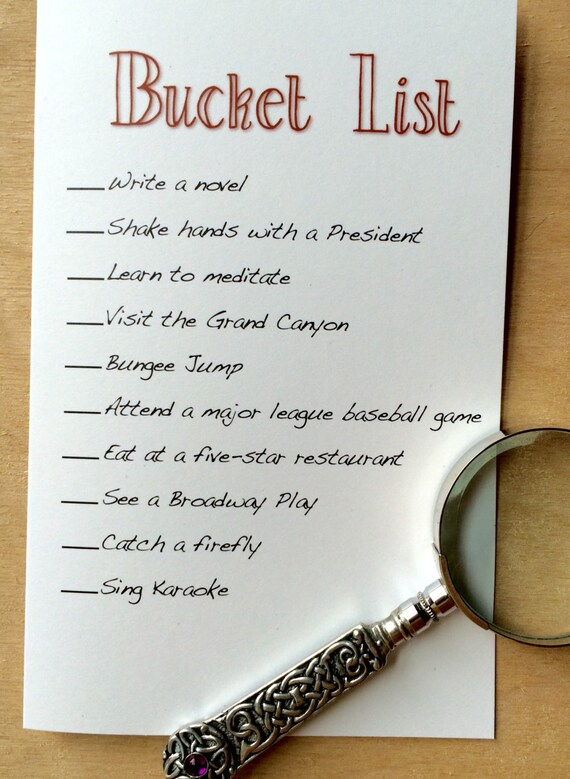 Bucket List
___Write a novel
___Shake hands with a President
___Learn to meditate
___Visit the Grand Canyon
___Bungee Jump
___Attend a major league baseball game
___Eat at a five-star restaurant
___See a Broadway Play
___Catch a firefly
___Sing Karaoke